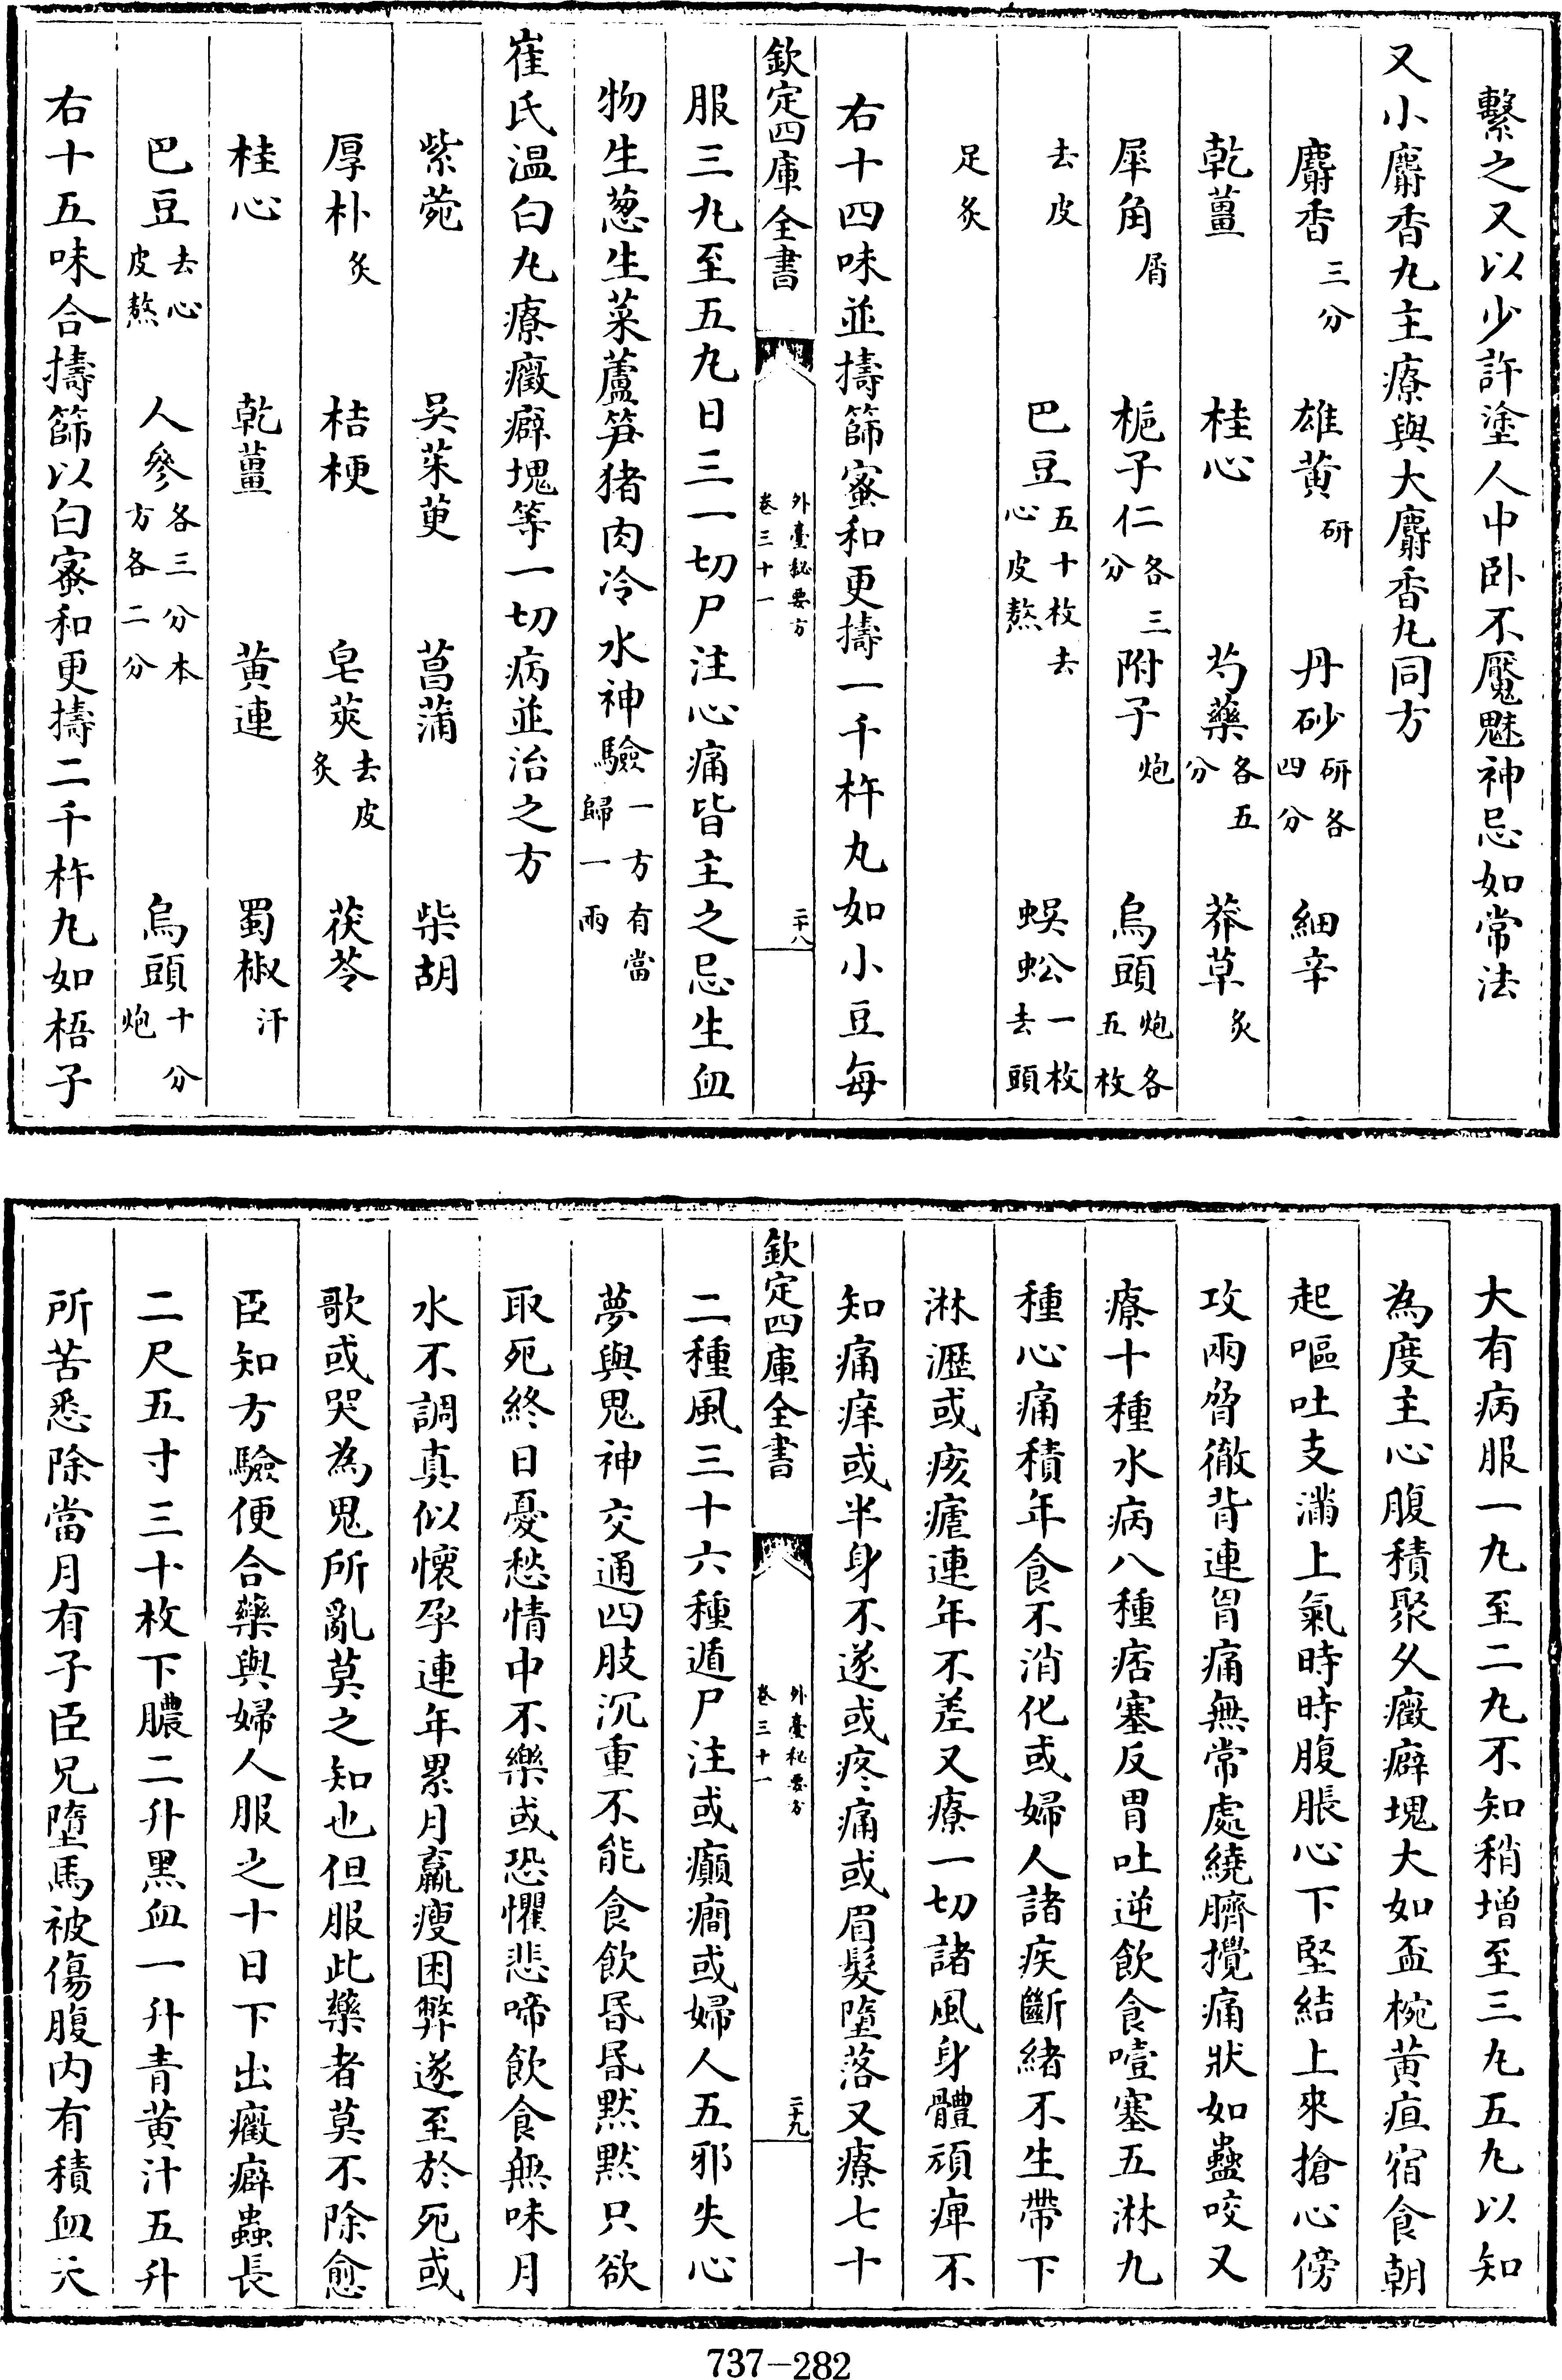 繫之又以少許塗人中卧不魘魅神忌如常法
又小麝香丸主療與大麝香丸同方
麝香三分 雄黄研 丹砂研各四分 細辛
乾薑 桂心 芍藥各五分 莽草炙
犀角屑 梔子仁各三分 附子炮 烏頭炮各五枚
去皮 巴豆五十枚去心皮熬 蜈蚣一枚去頭
足炙
右十四味並擣篩蜜和更擣一千杵丸如小豆每
欽定四庫全書 外臺秘要方卷三十一 二十八
服三丸至五丸日三一切尸注心痛皆主之忌生血
物生葱生菜蘆笋猪肉冷水神驗一方有當歸一兩
崔氏温白丸療癥癖塊等一切病並治之方
紫菀 吳茱萸 菖蒲 柴胡
厚朴炙 桔梗 皂莢去皮炙 茯苓
桂心 乾薑 黄連 蜀椒汗
巴豆去心皮熬 人參各三分本方各二分 烏頭十分炮
右十五味合擣篩以白蜜和更擣二千杵丸如梧子
大有病服一丸至二丸不知稍增至三丸五丸以知
為度主心腹積聚久癥癖塊大如盃椀黄疸宿食朝
起嘔吐支滿上氣時時腹脹心下堅結上來搶心傍
攻兩脅徹背連胷痛無常處繞臍攪痛狀如蠱咬又
療十種水病八種痞塞反胃吐逆飲食噎塞五淋九
種心痛積年食不消化或婦人諸疾斷緒不生帶下
淋瀝或痎瘧連年不差又療一切諸風身體頑痺不
知痛痒或半身不遂或疼痛或眉髮墮落又療七十
欽定四庫全書 外臺秘要方卷三十一 二十九
二種風三十六種遁尸注或癲癇或婦人五邪失心
夢與鬼神交通四肢沉重不能食飲昏昏黙黙只欲
取死終日憂愁情中不樂或恐懼悲啼飲食無味月
水不調真似懷孕連年累月羸瘦困弊遂至於死或
歌或哭為鬼所亂莫之知也但服此藥者莫不除愈
臣知方驗便合藥與婦人服之十日下出癥癖蟲長
二尺五寸三十枚下膿二升黑血一升青黄汁五升
所苦悉除當月有子臣兄墮馬被傷腹内有積血天
737-282